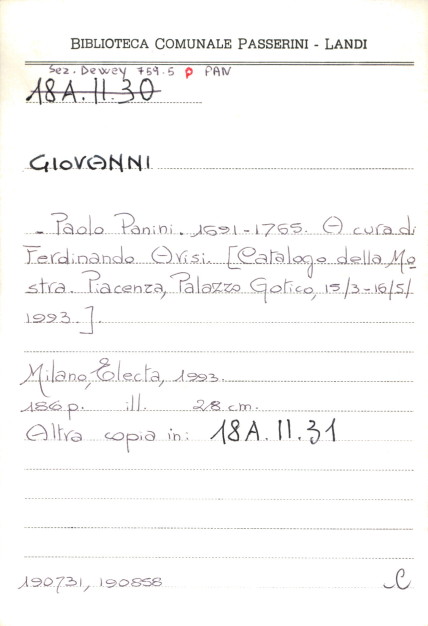 BIBLIOTECA COMUNALE PASSERINI - LANDI
Sez. Dewey 759.5 P PAN
18A.II.30
GIOVANNI
- Paolo Panini. 1691-1765. A cura di
Ferdinando Arisi. [Catalogo della Mo
stra. Piacenza, Palazzo Gotico, 15/3-16/5/
1993.].
Milano, Electa, 1993.
186 p. ill. 28 cm.
Altra copia in: 18A.II.31
190731, 190858 C